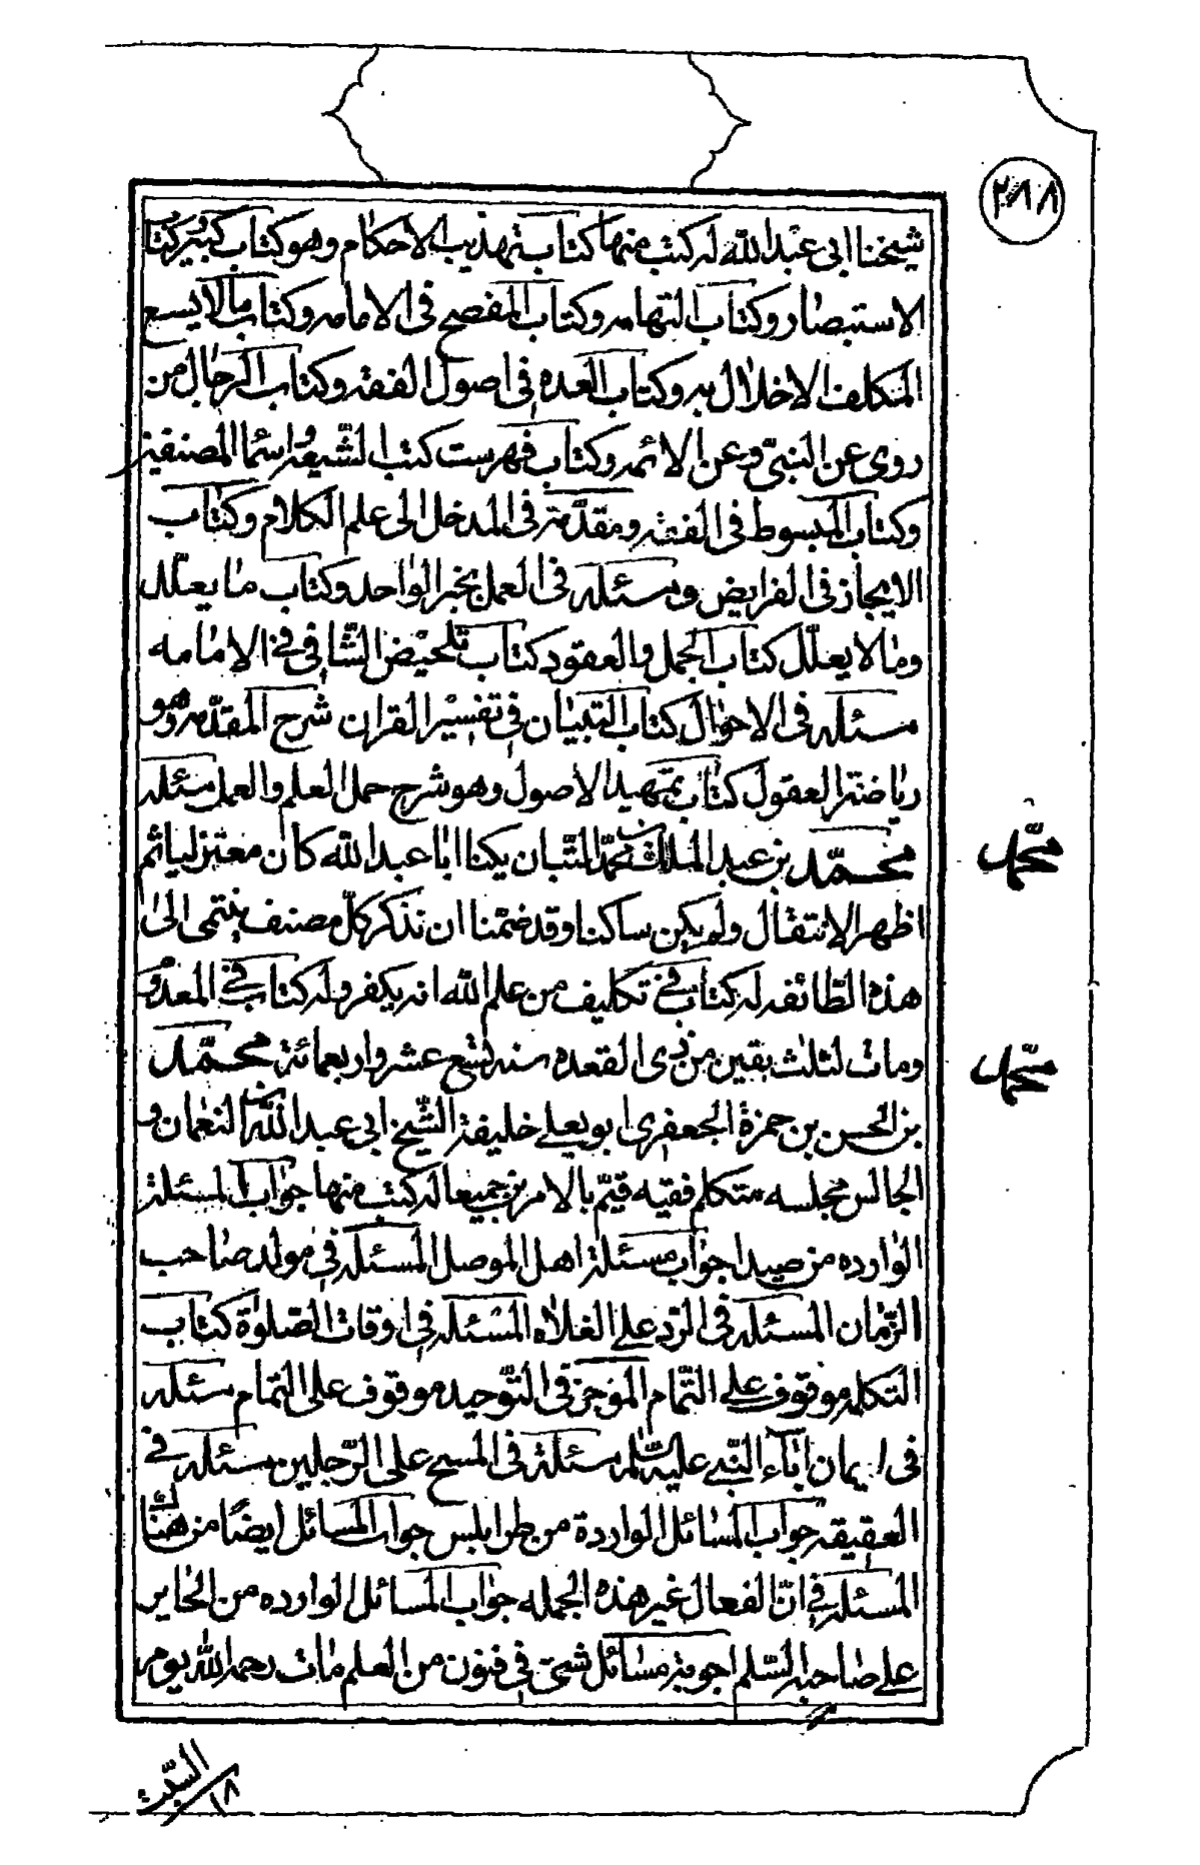 ٢٨٨
شيخنا ابى عبد الله له كتب منها كتاب تهذيب الاحكام وهو كتاب كبير وكتاب
الاستبصار وكتاب النهايه وكتاب المفصح فى الامامه وكتاب مالا يسع
المكلف الاخلال به وكتاب العده فى اصول الفقه وكتاب الرجال من
روى عن النبىّ وعن الائمه وكتاب فهرست كتب الشّيعة واسما المصنفين
وكتاب المبسوط فى الفقه ومقدّمة فى المدخل الى علم الكلام وكتاب
الايجاز فى الفرايض ومسئله فى العمل بخبر الواحد وكتاب ما يعلّل
وما لا يعلّل كتاب الجمل والعقود كتاب تلخيص الشّافى فى الامامه
مسئله فى الاحوال كتاب التبيان فى تفسير القران شرح المقدّمه وهو
رياضة العقول كتاب تمهيد الاصول وهو شرح جمل العلم والعمل مسئله
محمّد بن عبد الملك بن محمّد التّبان يكنا ابا عبد الله كان معتزليا ثم
اظهر الانتقال ولم يكن ساكنا وقد ضمنا ان نذكر كلّ مصنف ينتمى الى
هذه الطّائفه له كتاب فى تكليف من علم الله انه يكفر وله كتاب فى المعدوم
ومات لثلث بقين من ذى القعده سنه تسع عشر واربعمائة محمّد
بن الحسن بن حمزة الجعفرى ابو يعلى خليفة الشّيخ ابى عبد الله بن النعمان و
الجالس مجلسه متكلم فقيه قيّم بالامرين جميعا له كتب منها جواب المسئلة
الوارده من صيدا جواب مسئلة اهل الموصل المسئله فى مولد صاحب
الزّمان المسئله فى الرّد على الغلاه المسئله فى اوقات الصّلوٰة كتاب
التكمله موقوف على التّمام الموجز فى التّوحيد موقوف على التمام مسئله
فى ايمان اباء النّبى عليه السّلم مسئلة فى المسح على الرّجلين مسئله فى
العقيقه جواب المسائل الواردة من طرابلس جواب المسائل ايضًا من هناك
المسئله فى انّ الفعال غير هذه الجمله جواب المسائل الوارده من الحاير
على صاحبه السّلم اجوبة مسائل شتىّ فى فنون من العلم مات رحمه الله يوم
محمّد
محمّد
السّبت
١٨